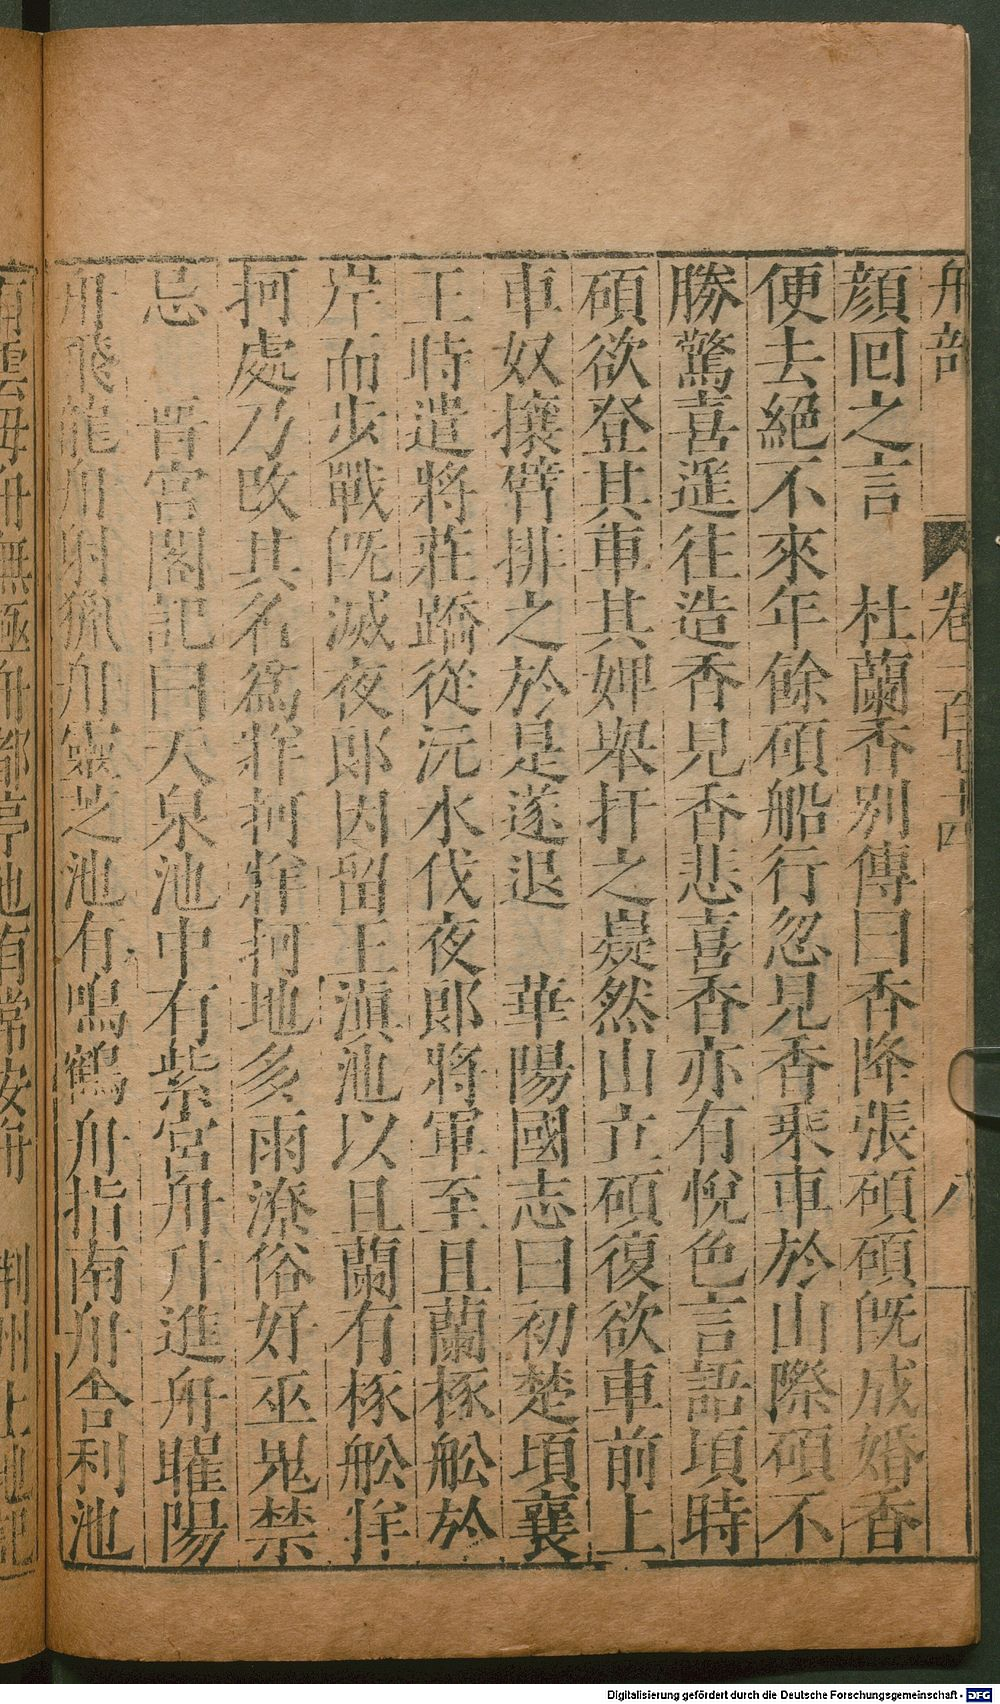 舟部 卷一百廿四 八
顏囘之言 杜蘭香別傳曰香降張碩碩旣成婚香
便去絕不來年餘碩船行忽見香乘車於山際碩不
勝驚喜遥往造香見香悲喜香亦有悅色言語頃時
碩欲登其車其婢舉扞之嶷然山立碩復欲車前上
車奴攘臂排之於是遂退 華陽國志曰初楚頃襄
王時遣將莊蹻從沅水伐夜郎將軍至且蘭椓舩於
岸而步戰旣滅夜郎因留王滇池以且蘭有椓舩牂
柯處乃改其名爲牂柯牂柯地多雨潦俗好巫鬼禁
忌 晉宮閣記曰天泉池中有紫宮舟升進舟曜陽
舟飛龍舟射獵舟靈芝池有鳴鶴舟指南舟舍利池
有雲母舟無極舟都亭池有常安舟 荆州土地記
Digitalisierung gefördert durch die Deutsche Forschungsgemeinschaft - DFG